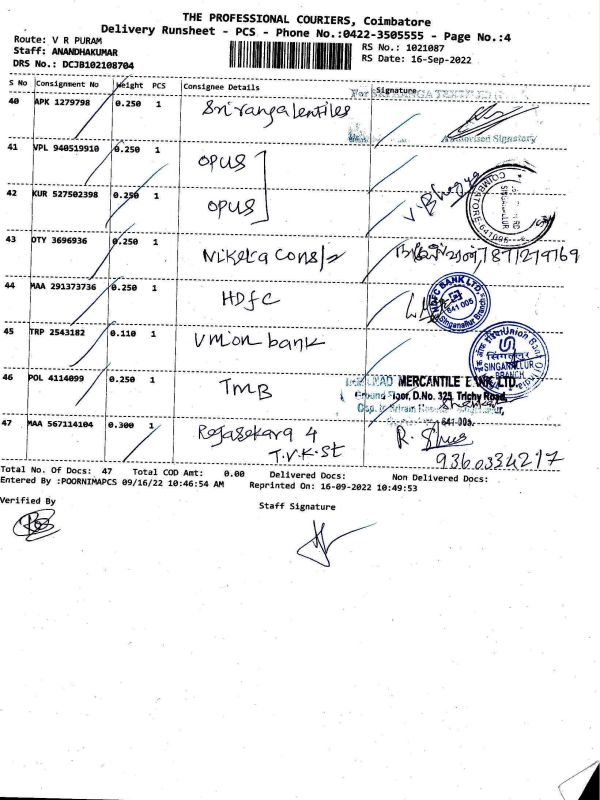 THE PROFESSIONAL COURIERS, Coimbatore
Delivery Runsheet - PCS - Phone No.:0422-3505555 - Page No.:4
Route: V R PURAM
RS No.: 1021087
Staff: ANANDHAKUMAR
RS Date: 16-Sep-2022
DRS No.: DCJB102108704
S No Consignment No Weight PCS Consignee Details Signature
40 APK 1279798 0.250 1
Authorised Signatory
41 VPL 940519910 0.250 1 OPUS
42 KUR 527502398 0.250 1 OPUS
COIMBATORE 641005
43 OTY 3696936 0.250 1
44 MAA 291373736 0.250 1 HDFC
HDFC BANK LTD.
641 005
Singanallur Branch
45 TRP 2543182 0.110 1 Union bank
Union Bank
SINGANALLUR
BRANCH
46 POL 4114099 0.250 1 TMB
MERCANTILE
Ground Floor, D.No. 325, Trichy Road,
47 MAA 567114104 0.300 1 Rajasekara 4
T.V.K.St
9360334217
Total No. Of Docs: 47 Total COD Amt: 0.00 Delivered Docs: Non Delivered Docs:
Entered By :POORNIMAPCS 09/16/22 10:46:54 AM Reprinted On: 16-09-2022 10:49:53
Verified By
Staff Signature